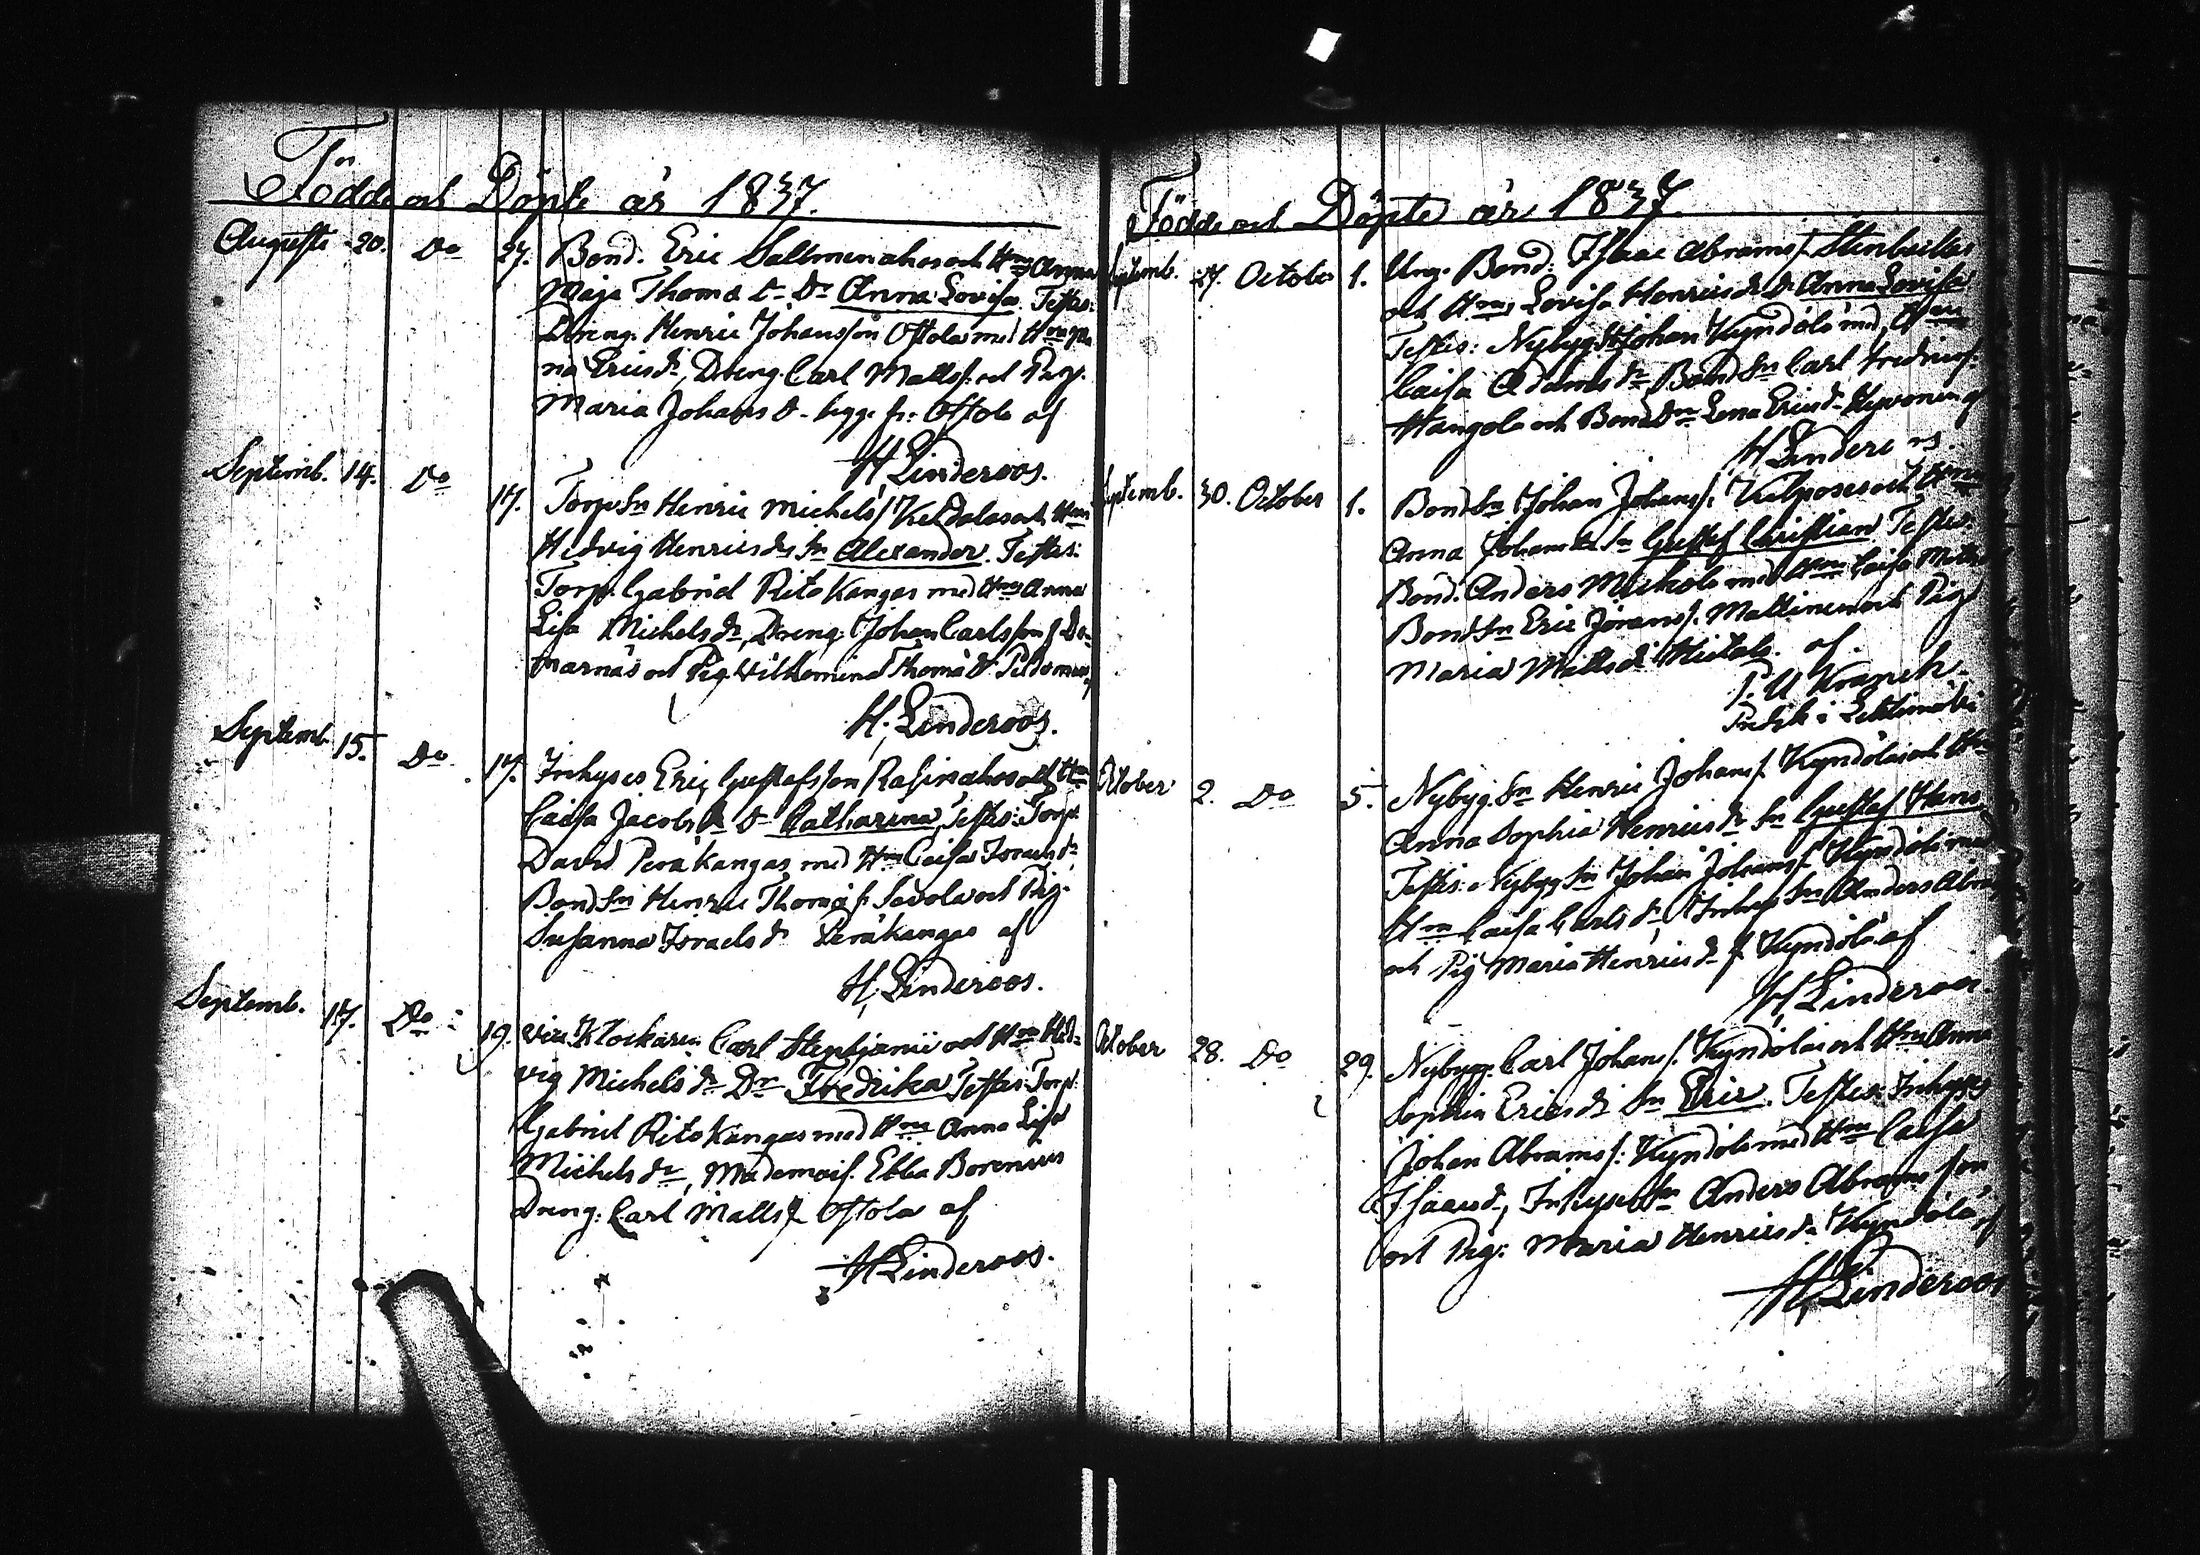 Födde och Döpte år 1837.
Augusti 20. Do 27. Bond. Eric Saltmenahos och Hu Anna
Maja Thomæ dr Dr Anna Lovisa. Testes:
Dreng. Henric Johansson Ostola med Hu
na Ericsdr, Dreng. Carl Matts s. och Pig.
Maria Johans dr Ostola af
H Linderoos.
Septemb. 14. Do 17. Torp Sn Henric Michels s. Keldola och Hu
Hedvig Henricsdr Sn Alexander. Testes:
Torp. Gabriel Rito Kangas med Hu Anna
Lisa Michelsdr, Dreng. Johan Carlsson
marnäs och Pig. Wilhemina Thomæ dr
H. Linderoos.
Septemb. 15. Do 17. Inhyses Eric Gustafsson Rasinahos och Hu
Caisa Jacobs dr Dr Catharina, Testes: Torp.
David Peräkangas med Hu Caisa Israelsdr,
Bond Sn Henric Thomæ s. Savola och Pig.
Susanna Israels dr Peräkangas af
H. Linderoos.
Septemb. 17. Do 19. Vice Klockaren Carl Stephani och Hu Hed-
vig Michels dr Dr Fredrika Testes: Torp.
Gabriel Rito Kangas med Hu Anna Lisa
Michels dr, Mademois. Ebba Borenius
Dreng. Carl Matts s. Ostola af
H Linderoos.
Födde och Döpte år 1837.
Septemb. 27. October 1. Ung. Bond. Isaac Abrams s. Stenbacka
och Hu Lovisa Henricsdr Dr Anna Lovisa
Testes: Nybygg. Johan Kyndölä med Hu
Caisa Adamsdr, Bond Sn Carl Fredrics s.
Hangola och Bond Dr Lena Ericsdr Hyvönen af
H Linderoos.
Septemb. 30. October 1. Bond Sn Johan Johans s. Kilpos och Hu
Anna Johansdr Sn Gustaf Christian Testes:
Bond. Anders Mickola med Hu Caisa
Bond Sn Eric Jörans s. Mattinen och Pig
Maria Mattsdr Hietala af.
P. U. Kranck
i Lehtimäki
October 2. Do 5. Nybyg. Sn Henric Johans s. Kyndölä och Hu
Anna Sophia Henricsdr Sn Gustaf Hans
Testes: Nybyg Sn Johan Johans s. Kyndölä med
Hu Caisa Carlsdr, Inhys Sn Anders Abra
och Pig Maria Henricsdr f. Kyndölä af
H, Linderoos.
October 28. Do 29. Nybygg. Carl Johans s. Kyndölä och Hu Anna
Sophia Ericsdr Sn Eric. Testes: Inhyses
Johan Abrams s. Kyndölä med Hu Caisa
Isaacsdr, Inhyses Sn Anders Abramsson
och Pig: Maria Henricsdr Kyndölä af
H, Linderoos